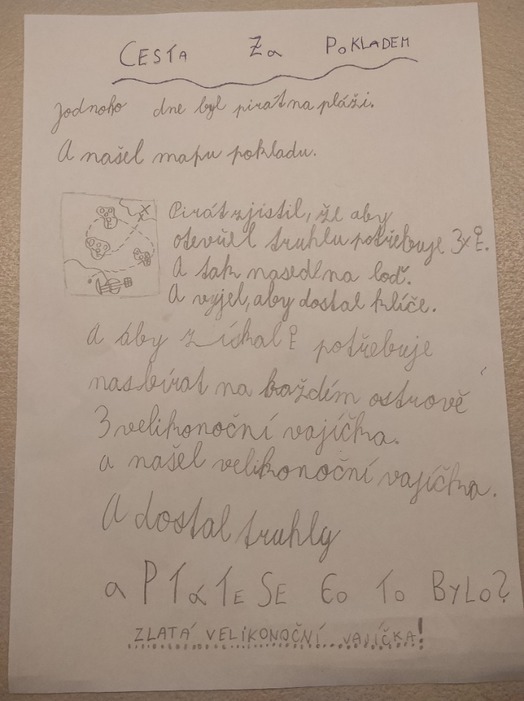 CESTA Za PoKLADEM
Jednoho dne byl pirát na pláži.
A našel mapu pokladu.
Pirát zjistil, že aby
otevřel truhlu potřebuje 3x
A tak nasedl na loď.
A vyjel, aby dostal klíče.
A áby získal potřebuje
nasbírat na každém ostrově
3 velikonoční vajíčka.
a našel velikonoční vajíčka.
A dostal truhly
a PTáTE SE Co To BYLO?
ZLATÁ VELIKONOČNÍ VAJÍČKA!